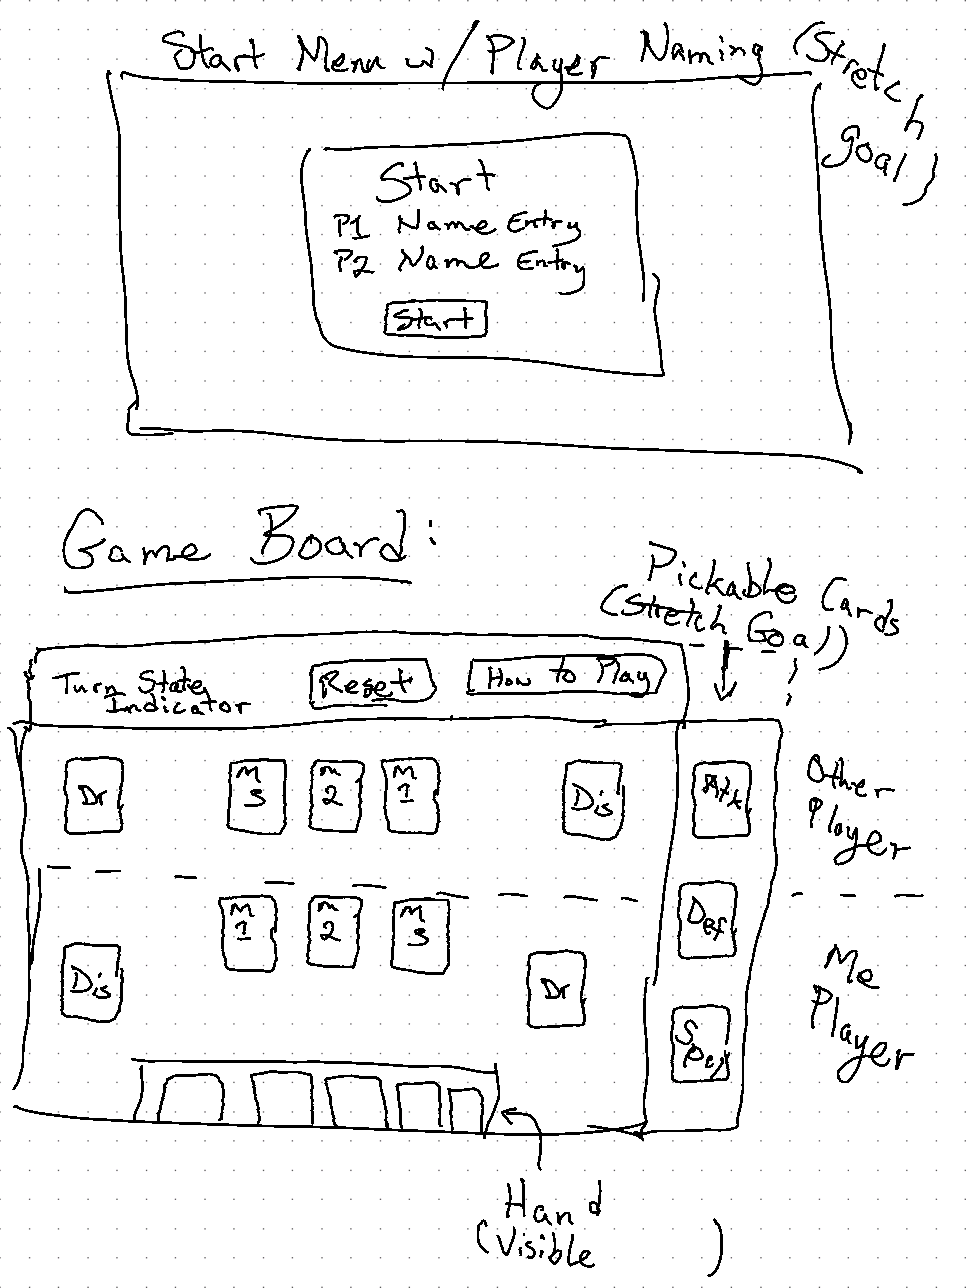 Start Menu w/ Player Naming (Stretch
goal)
Start
P1 Name Entry
P2 Name Entry
Start
Game Board:
Pickable Cards
(Stretch Goal)
Turn State
Indicator
Reset
How to Play
Dr
M
3
M
2
M
1
Dis
Atk
Other
Player
M
1
M
2
M
3
Def
Dis
Dr
Me
Player
Hand
(Visible )